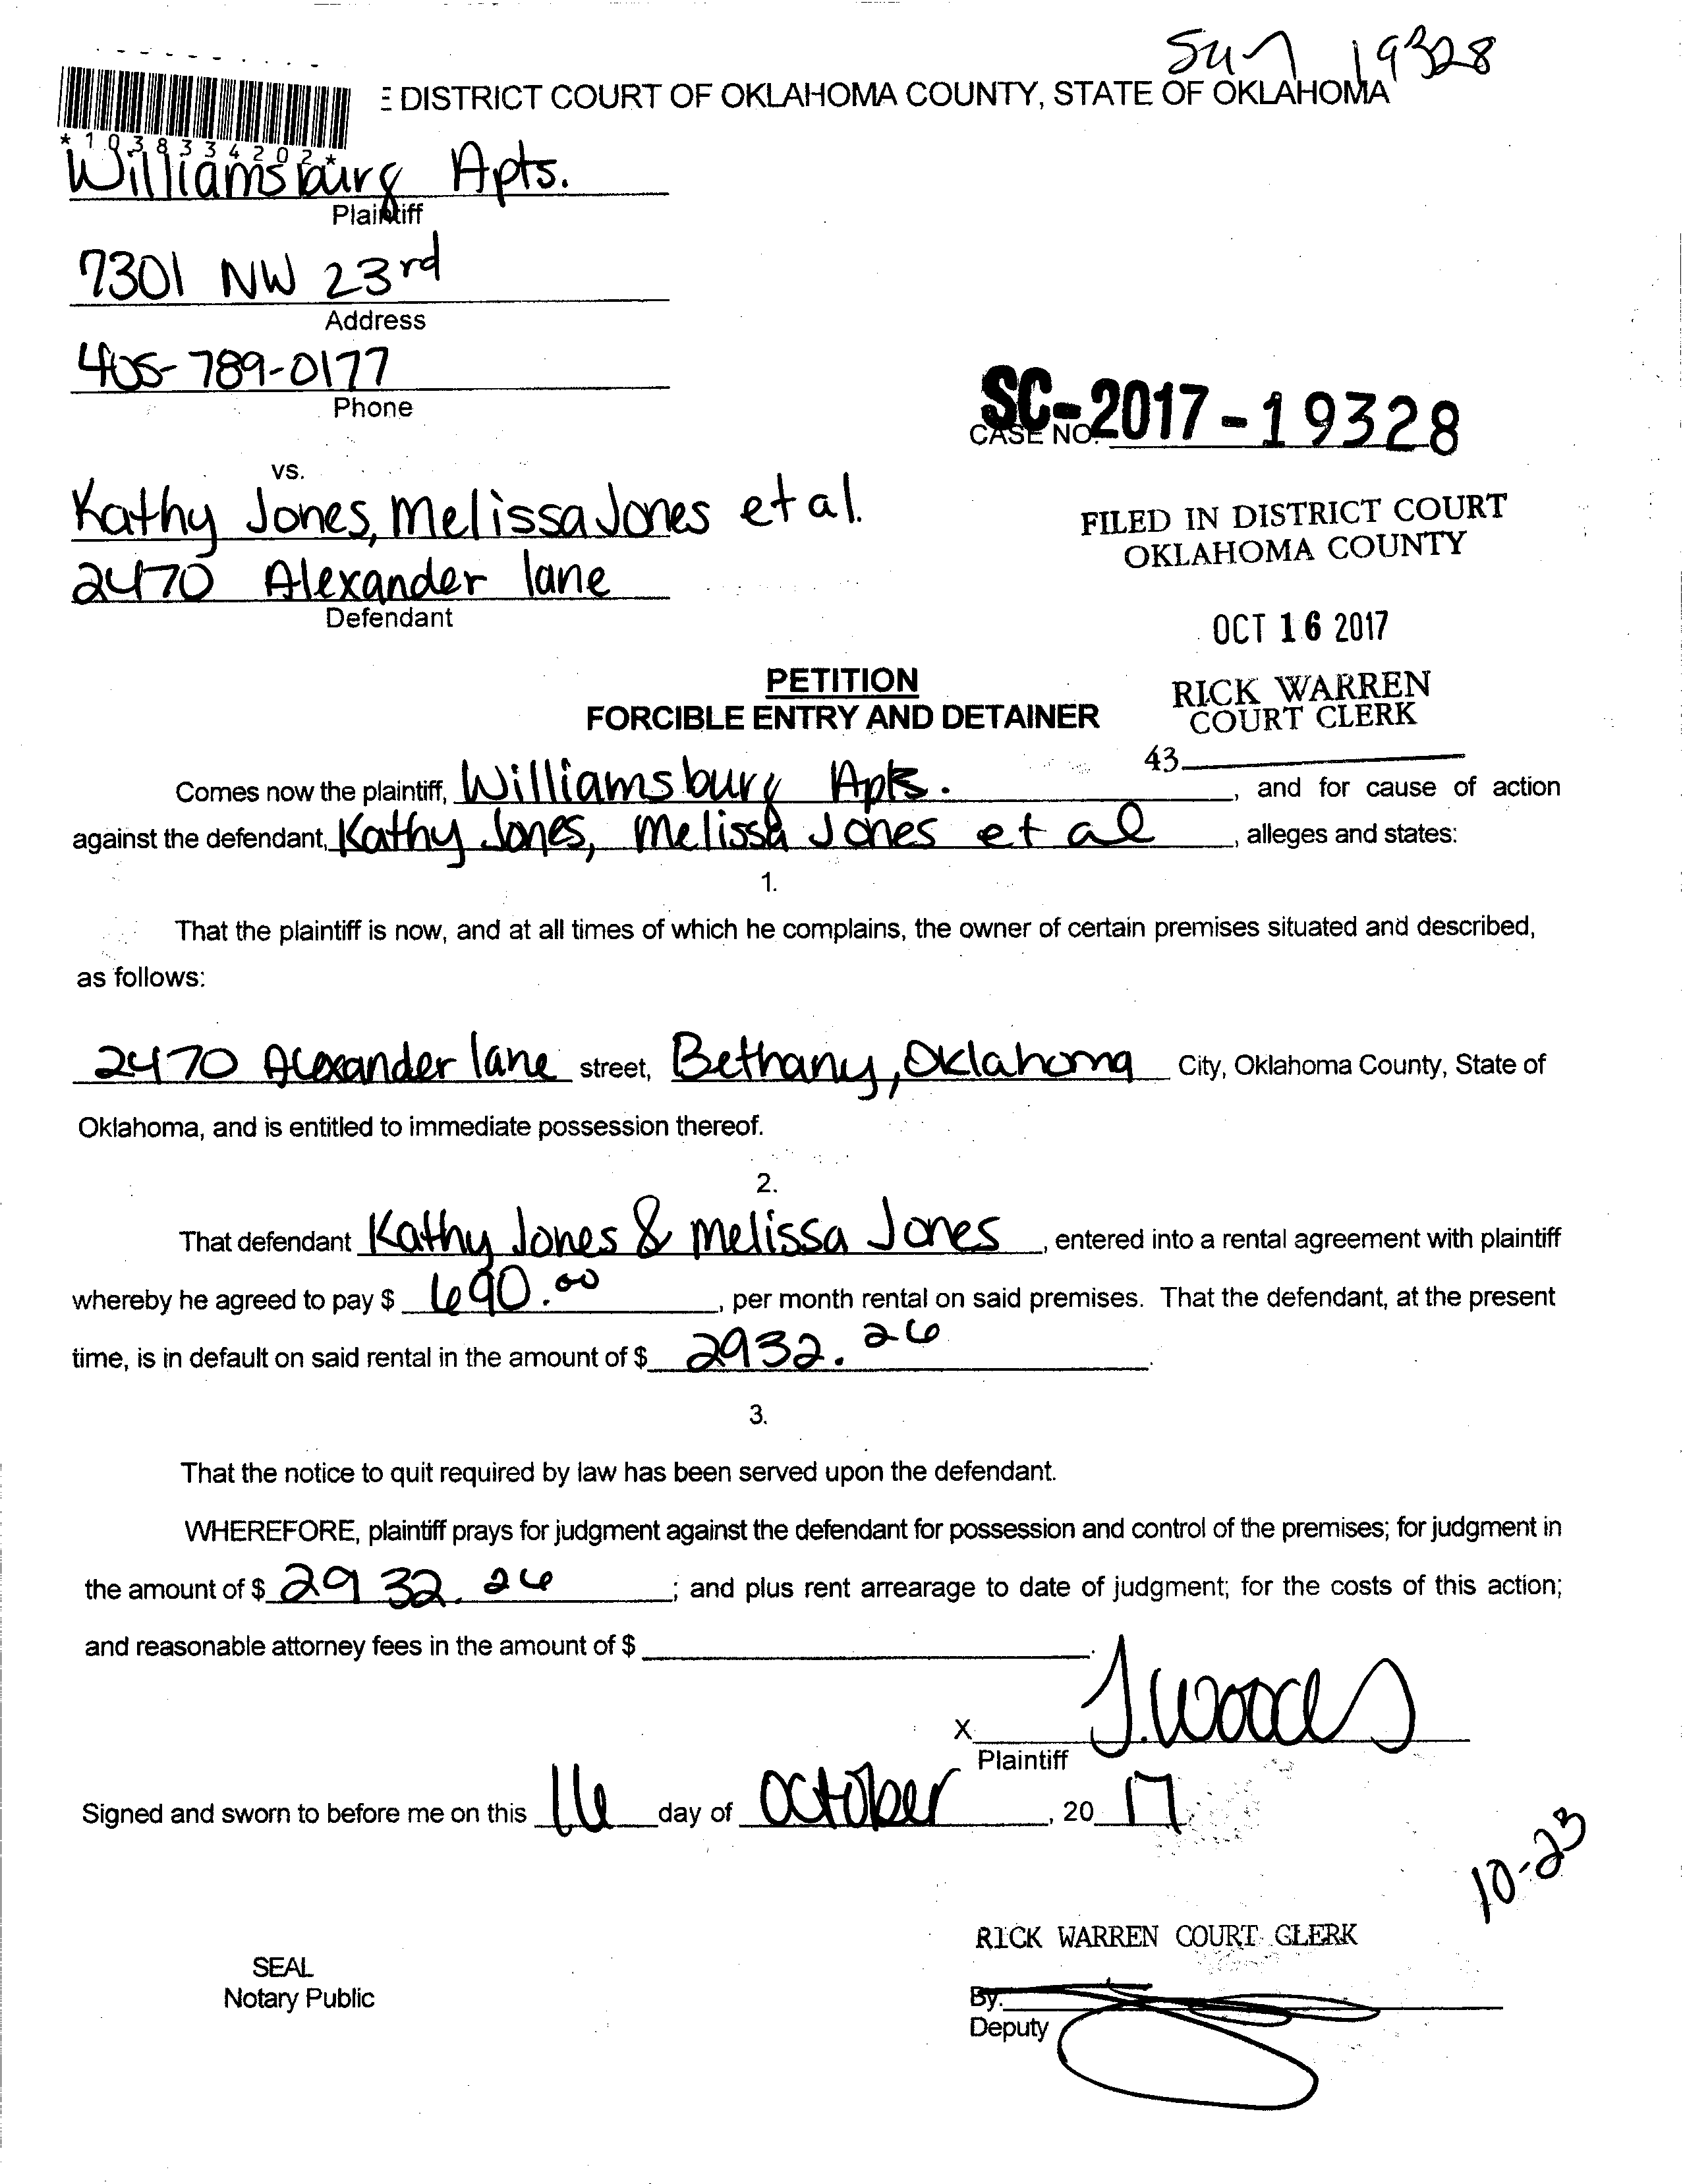 Sun 19328
E DISTRICT COURT OF OKLAHOMA COUNTY, STATE OF OKLAHOMA
*1038334202*
Williamsburg Apts.
Plaintiff
7301 NW 23rd
Address
405-789-0177
Phone
SC-2017-19328
CASE NO.
vs.
Kathy Jones, Melissa Jones et al.
2470 Alexander lane
Defendant
FILED IN DISTRICT COURT
OKLAHOMA COUNTY
OCT 16 2017
RICK WARREN
COURT CLERK
43
PETITION
FORCIBLE ENTRY AND DETAINER
Comes now the plaintiff, Williamsburg Apts. , and for cause of action
against the defendant, Kathy Jones, Melissa Jones et al , alleges and states:
1.
That the plaintiff is now, and at all times of which he complains, the owner of certain premises situated and described,
as follows:
2470 Alexander lane street, Bethany, Oklahoma City, Oklahoma County, State of
Oklahoma, and is entitled to immediate possession thereof.
2.
That defendant Kathy Jones & Melissa Jones , entered into a rental agreement with plaintiff
whereby he agreed to pay $ 690.00 , per month rental on said premises. That the defendant, at the present
time, is in default on said rental in the amount of $ 2932.26 .
3.
That the notice to quit required by law has been served upon the defendant.
WHEREFORE, plaintiff prays for judgment against the defendant for possession and control of the premises; for judgment in
the amount of $ 2932.26 ; and plus rent arrearage to date of judgment; for the costs of this action;
and reasonable attorney fees in the amount of $ .
X J. Woods
Plaintiff
Signed and sworn to before me on this 16 day of October , 20 17
10-23
RICK WARREN COURT CLERK
SEAL
Notary Public
By:
Deputy